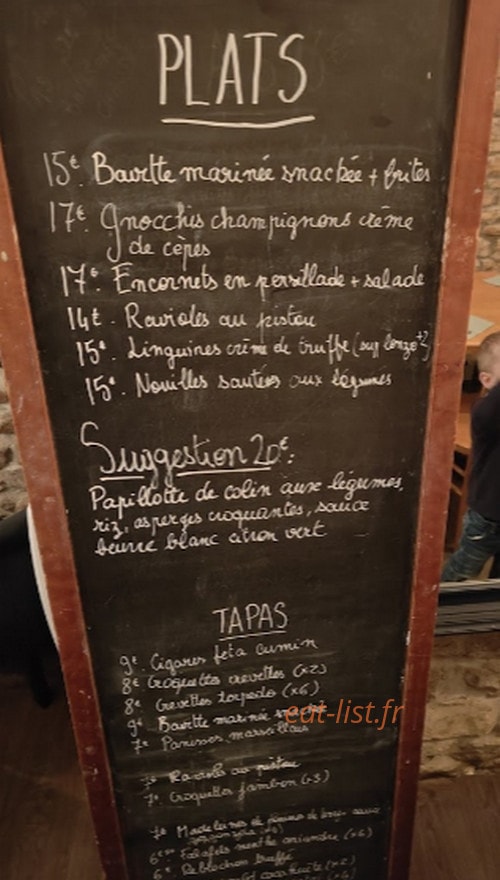 PLATS
15€. Bavette marinée snackée + frites
17€. Gnocchis champignons crème
de cèpes
17€. Encornets en persillade + salade
14€. Ravioles au pistou
15€. Linguines crème de truffe (sup lonzo
15€. Nouilles sautées aux légumes
Suggestion 20€:
Papillotte de colin aux légumes,
riz, asperges croquantes, sauce
beurre blanc citron vert
TAPAS
9€. Cigares feta cumin
8€ Croquettes crevettes (x2)
8€ Crevettes torpedo (x6)
9€ Bavette marinée snackée
eat-list.fr
7€ Panisses marseillais
7€ Ravioles au pistou
7€ Croquettes jambon (x3)
7€ Madeleines et
Falafels menthe coriandre (x6)
6€ Reblochon truffé